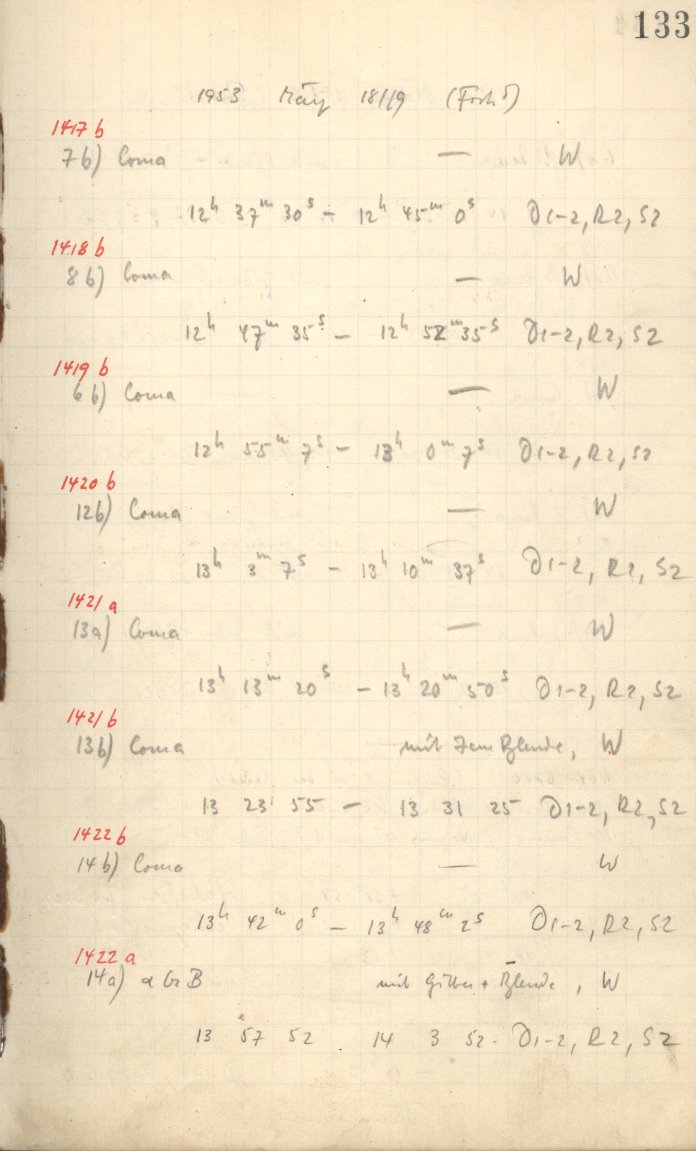 133
1953 März 18/19 (Forts)
1417 b
7b) Coma — W
12h 37m 30s – 12h 45m 0s D1-2, R2, S2
1418 b
8b) Coma — W
12h 47m 35s – 12h 52m 35s D1-2, R2, S2
1419 b
6b) Coma — W
12h 55m 7s – 13h 0m 7s D1-2, R2, S2
1420 b
12b) Coma — W
13h 3m 7s – 13h 10m 37s D1-2, R2, S2
1421 a
13a) Coma — W
13h 13m 20s – 13h 20m 50s D1-2, R2, S2
1421 b
13b) Coma mit 7cm Blende, W
13 23 55 – 13 31 25 D1-2, R2, S2
1422 b
14b) Coma — W
13h 42m 0s – 13h 48m 2s D1-2, R2, S2
1422 a
14a) α B mit Gitter + Blende, W
13 57 52 14 3 52. D1-2, R2, S2